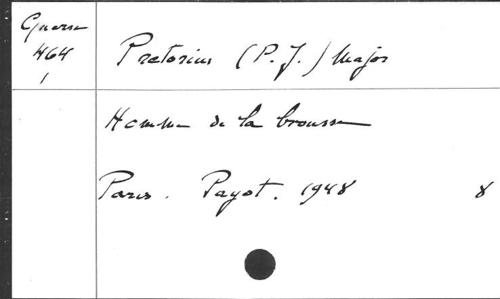 Guerre
464
1
Pretorius (P. J.) Major
Homme de la brousse
Paris. Payot. 1948 8